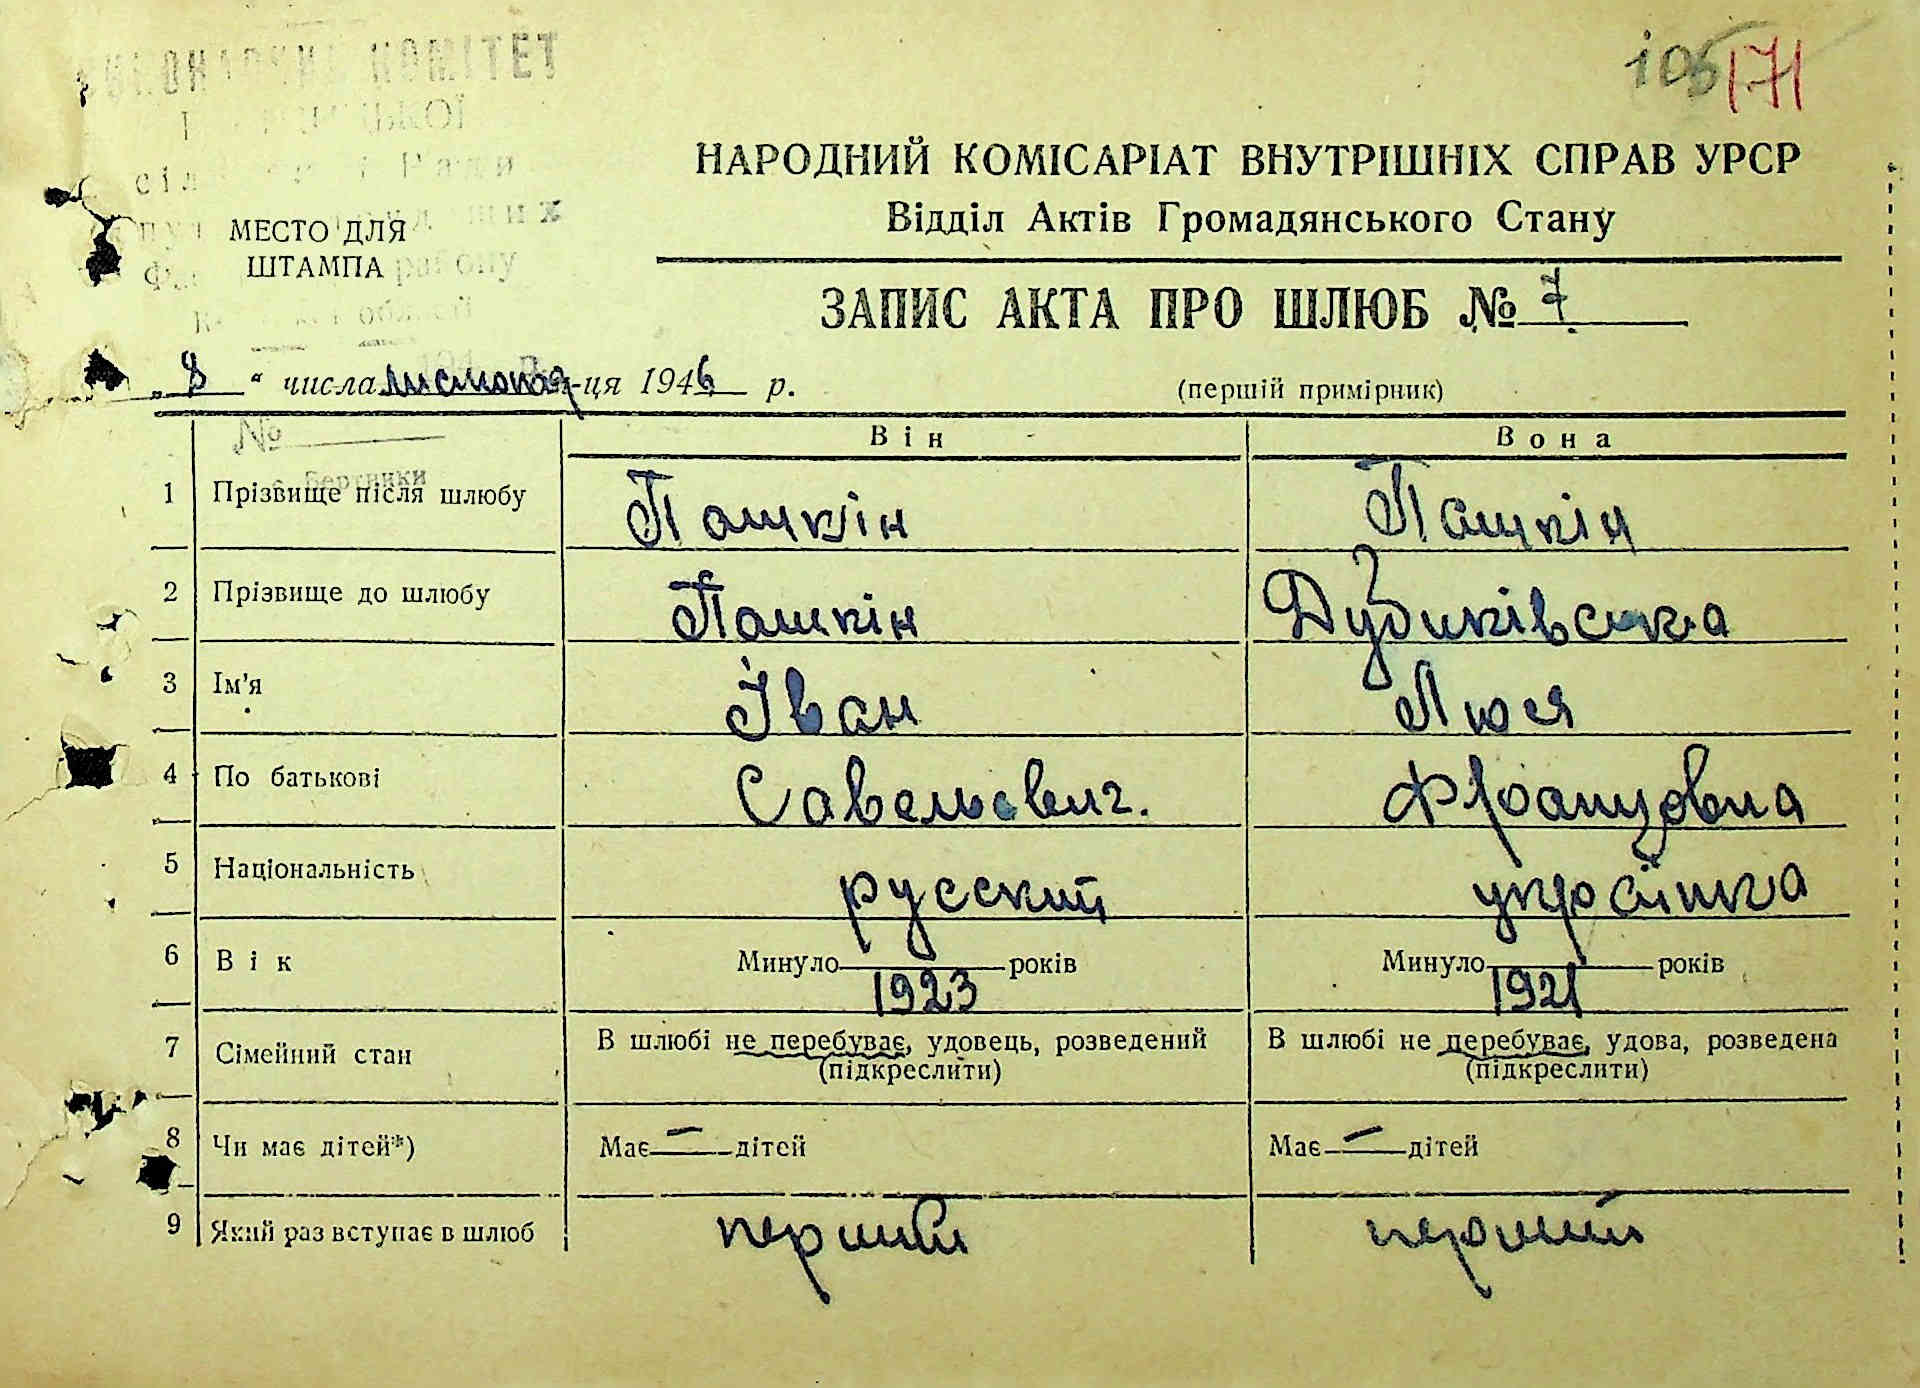 КОМІТЕТ
105 171
НАРОДНИЙ КОМІСАРІАТ ВНУТРІШНІХ СПРАВ УРСР
Відділ Актів Громадянського Стану
МЕСТО ДЛЯ
ШТАМПА
району
області
ЗАПИС АКТА ПРО ШЛЮБ № 7
„8“ числа листопада-ця 1946 р.
(першій примірник)
№
Він Вона
с. Бертники
1 Прізвище після шлюбу Пашкін Пашкін
2 Прізвище до шлюбу Пашкін Дубиківська
3 Ім'я Іван Люся
4 По батькові Савельевич. Францовна
5 Національність русский українка
6 Вік Минуло 1923 років Минуло 1921 років
7 Сімейний стан В шлюбі не перебуває, удовець, розведений (підкреслити) В шлюбі не перебуває, удова, розведена (підкреслити)
8 Чи має дітей*) Має — дітей Має — дітей
9 Який раз вступає в шлюб перший перший